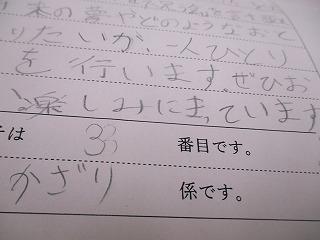 来の夢やどのようなおと
りたいか、一人ひとり
を行います。ぜひお
楽しみにまっています
は 33 番目です。
かざり 係です。